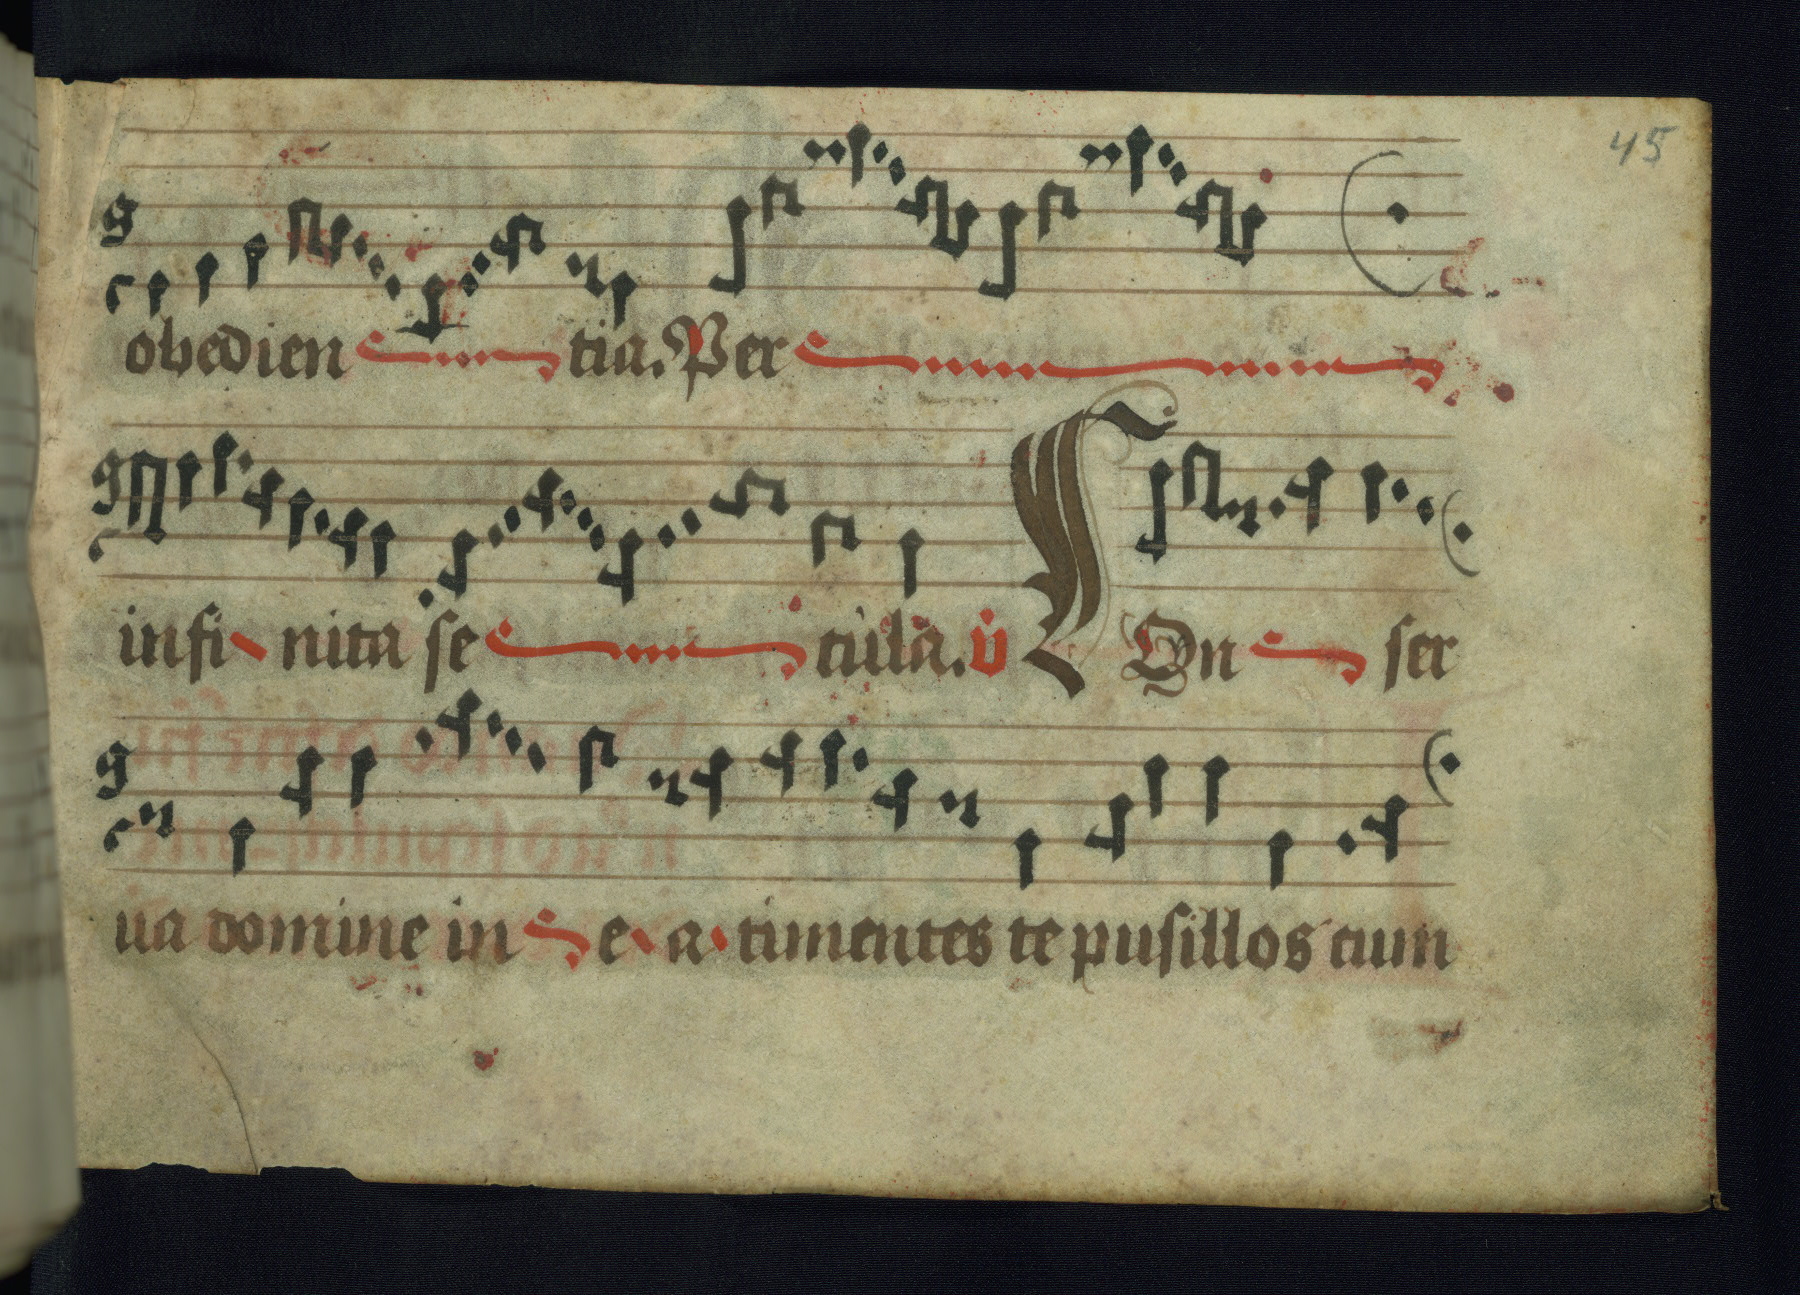 45
obedien tia. Per
infi nita se cula. v̇ Con ser
ua domine in e a timentes te pusillos cum